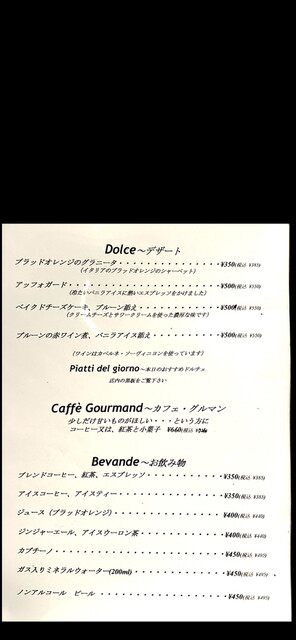 Dolce～デザート
ブラッドオレンジのグラニータ・・・・・・・・・・・・・¥350(税込 ¥385)
(イタリアのブラッドオレンジのシャーベット)
アッフォガード・・・・・・・・・・・・・・・・・・・・¥500(税込 ¥550)
(冷たいバニラアイスに熱いエスプレッソをかけました)
ベイクドチーズケーキ、プルーン添え・・・・・・・・・・¥500(税込 ¥550)
(クリームチーズとサワークリームを使った濃厚な味です)
プルーンの赤ワイン煮、バニラアイス添え・・・・・・・・¥500(税込 ¥550)
(ワインはカベルネ・ソーヴィニヨンを使っています)
Piatti del giorno～本日のおすすめドルチェ
店内の黒板をご覧下さい
Caffè Gourmand～カフェ・グルマン
少しだけ甘いものがほしい・・・という方に
コーヒー又は、紅茶と小菓子 ¥660(税込
Bevande～お飲み物
ブレンドコーヒー、紅茶、エスプレッソ・・・・・・・・・¥350(税込 ¥385)
アイスコーヒー、アイスティー・・・・・・・・・・・・・¥350(税込 ¥385)
ジュース（ブラッドオレンジ）・・・・・・・・・・・・・¥400(税込 ¥440)
ジンジャーエール、アイスウーロン茶・・・・・・・・・・¥400(税込 ¥440)
カプチーノ・・・・・・・・・・・・・・・・・・・・・・¥450(税込 ¥495)
ガス入りミネラルウォーター(200ml)・・・・・・・・・・¥450(税込 ¥495)
ノンアルコール ビール・・・・・・・・・・・・・・・・¥450(税込 ¥495)